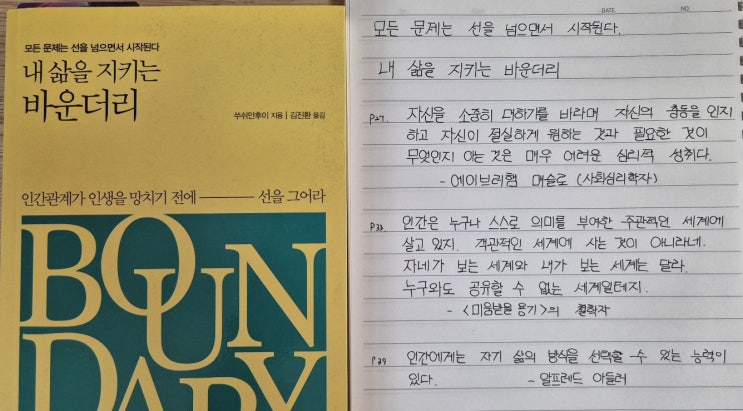 모든 문제는 선을 넘으면서 시작된다
내 삶을 지키는
바운더리
쑤쉬안후이 지음 | 김진환 옮김
인간관계가 인생을 망치기 전에 ──── 선을 그어라
BOUN
DARY
DATE NO.
모든 문제는 선을 넘으면서 시작된다.
내 삶을 지키는 바운더리
P27. 자신을 소중히 대하기를 바라며 자신의 충동을 인지
하고 자신이 절실하게 원하는 것과 필요한 것이
무엇인지 아는 것은 매우 어려운 심리적 성취다.
- 에이브러햄 매슬로 (사회심리학자)
P33. 인간은 누구나 스스로 의미를 부여한 주관적인 세계에
살고 있지. 객관적인 세계에 사는 것이 아니라네.
자네가 보는 세계와 내가 보는 세계는 달라.
누구와도 공유할 수 없는 세계일테지.
- <미움받을 용기>의 철학자
P39 인간에게는 자기 삶의 방식을 선택할 수 있는 능력이
있다. - 알프레드 아들러